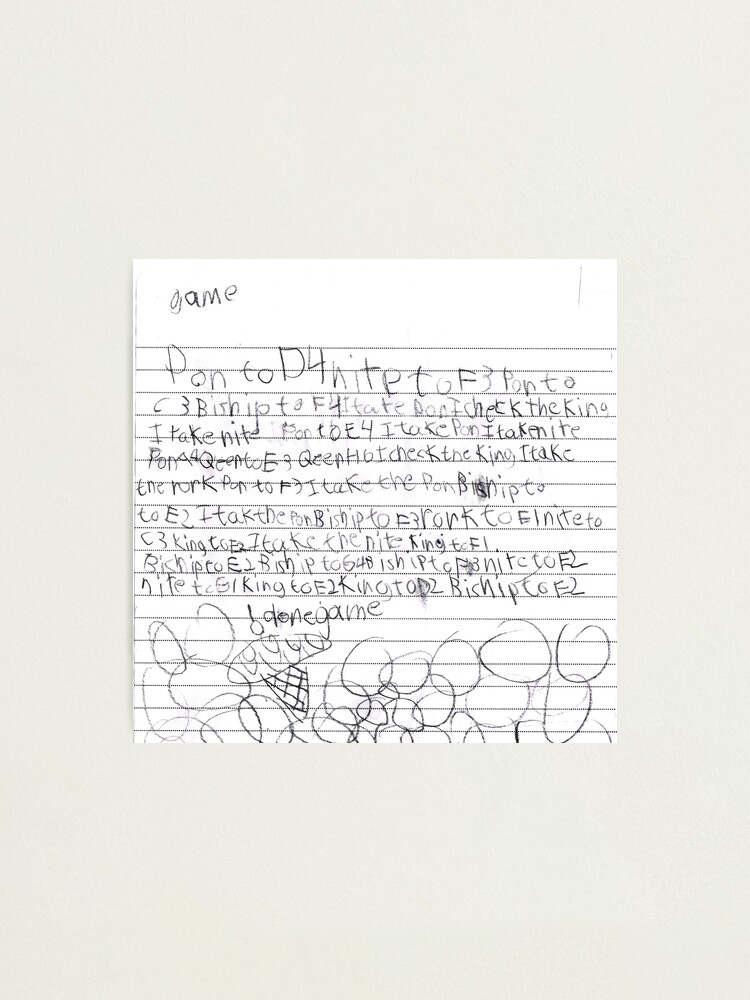 game
Pon to D4 nite to F3 Pon to
C3 Biship to F4 I take Pon I check the King
I take nite Pon to E4 I take Pon I take nite
Pon A4 Qeen to E3 Qeen H8 I check the King I take
the rork Pon to F3 I take the Pon Biship to
to E2 I tak the Pon Biship to F3 rork to E1 nite to
C3 King to E2 I take the nite King to F1
Biship to E2 Biship to G4 B iship to F3 nite to E2
nite to G1 King to E2 King to D2 Biship to E2
done game